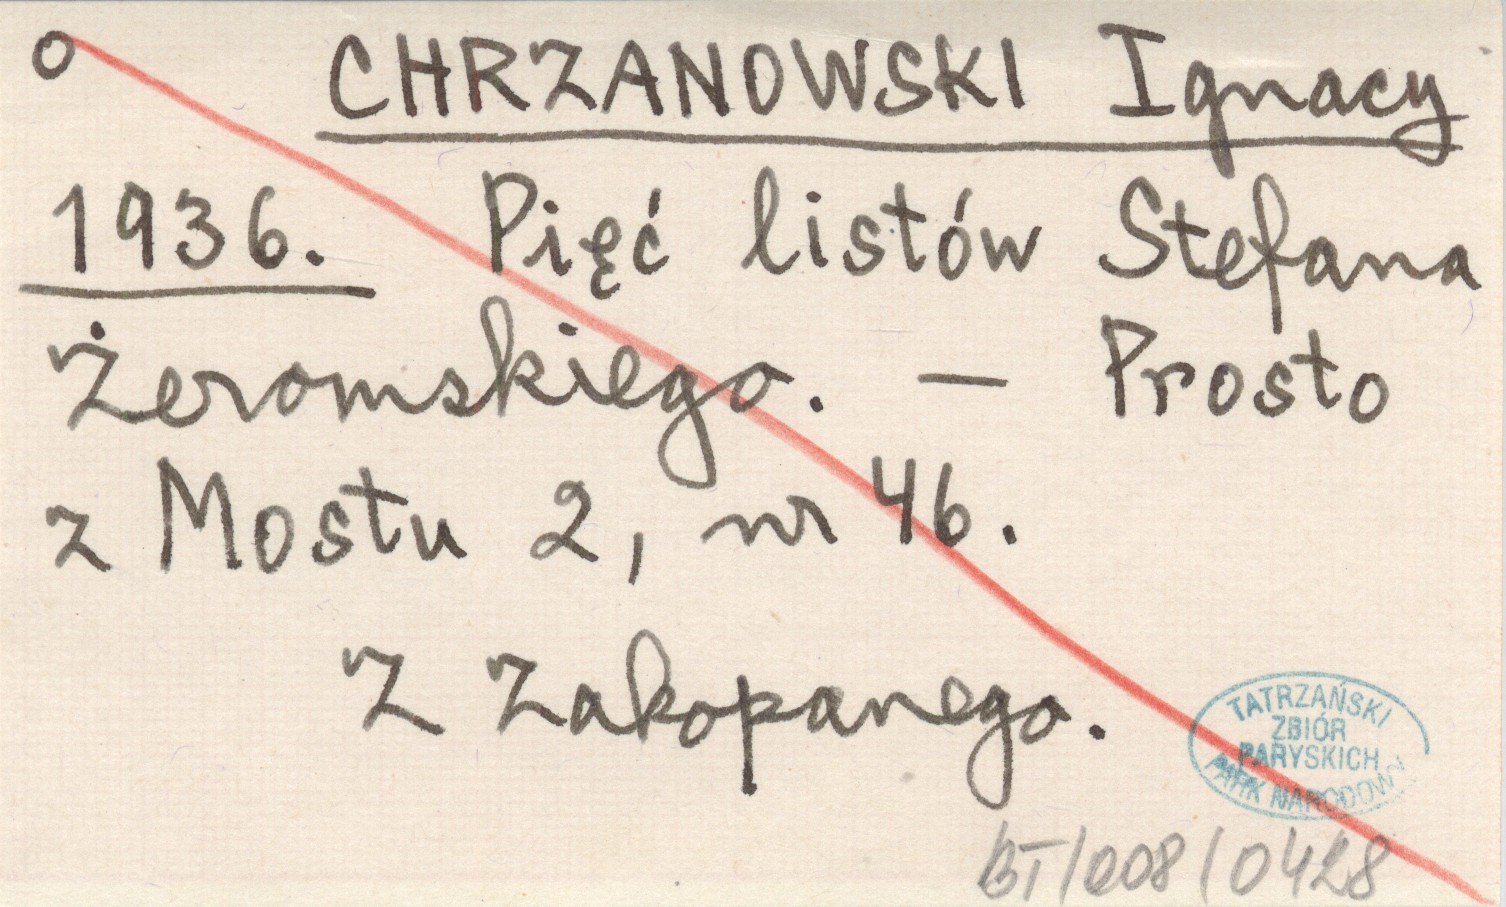 o CHRZANOWSKI Ignacy
1936. Pięć listów Stefana
Żeromskiego. — Prosto
z Mostu 2, nr 46.
Z Zakopanego.
TATRZAŃSKI
ZBIÓR
PARYSKICH
PARK NARODOWY
BT/008/0428